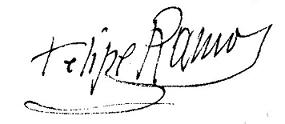 Felipe Ramos